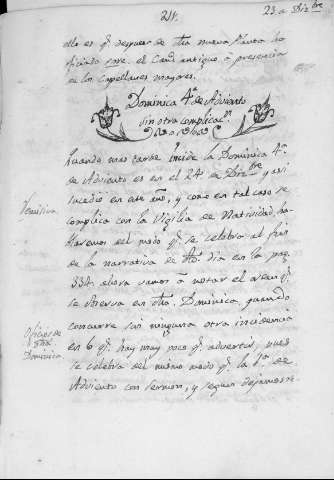 211.
23 a Dizbre
ello es q. despues de dha nueva Planta ha
oficiado sore. el Cand. antiguo à presencia
de los Capellanes mayores.
Dominica 4ª de Adviento
sin otra complicacn.
Quando mas tarde incide la Dominica 4ª
de Adviento es en el 24 de Dizbre y asi
sucedio en este año, y como en tal caso se
complica con la Vigilia de Natividad, ha-
blaremos del modo q. se celebra al fin
de la narrativa de dho. dia en la pag.
334. ahora vamos à notar el aseu q.
se observa en dha. Dominica, quando
concurre sin ninguna otra incidencia
en 6 q. hay muy poco q. advertir, pues
se celebra del mismo modo q. la 1ª de
Adviento con Sermon, y segun dejamos re-
Oficios de
dha
Dominica